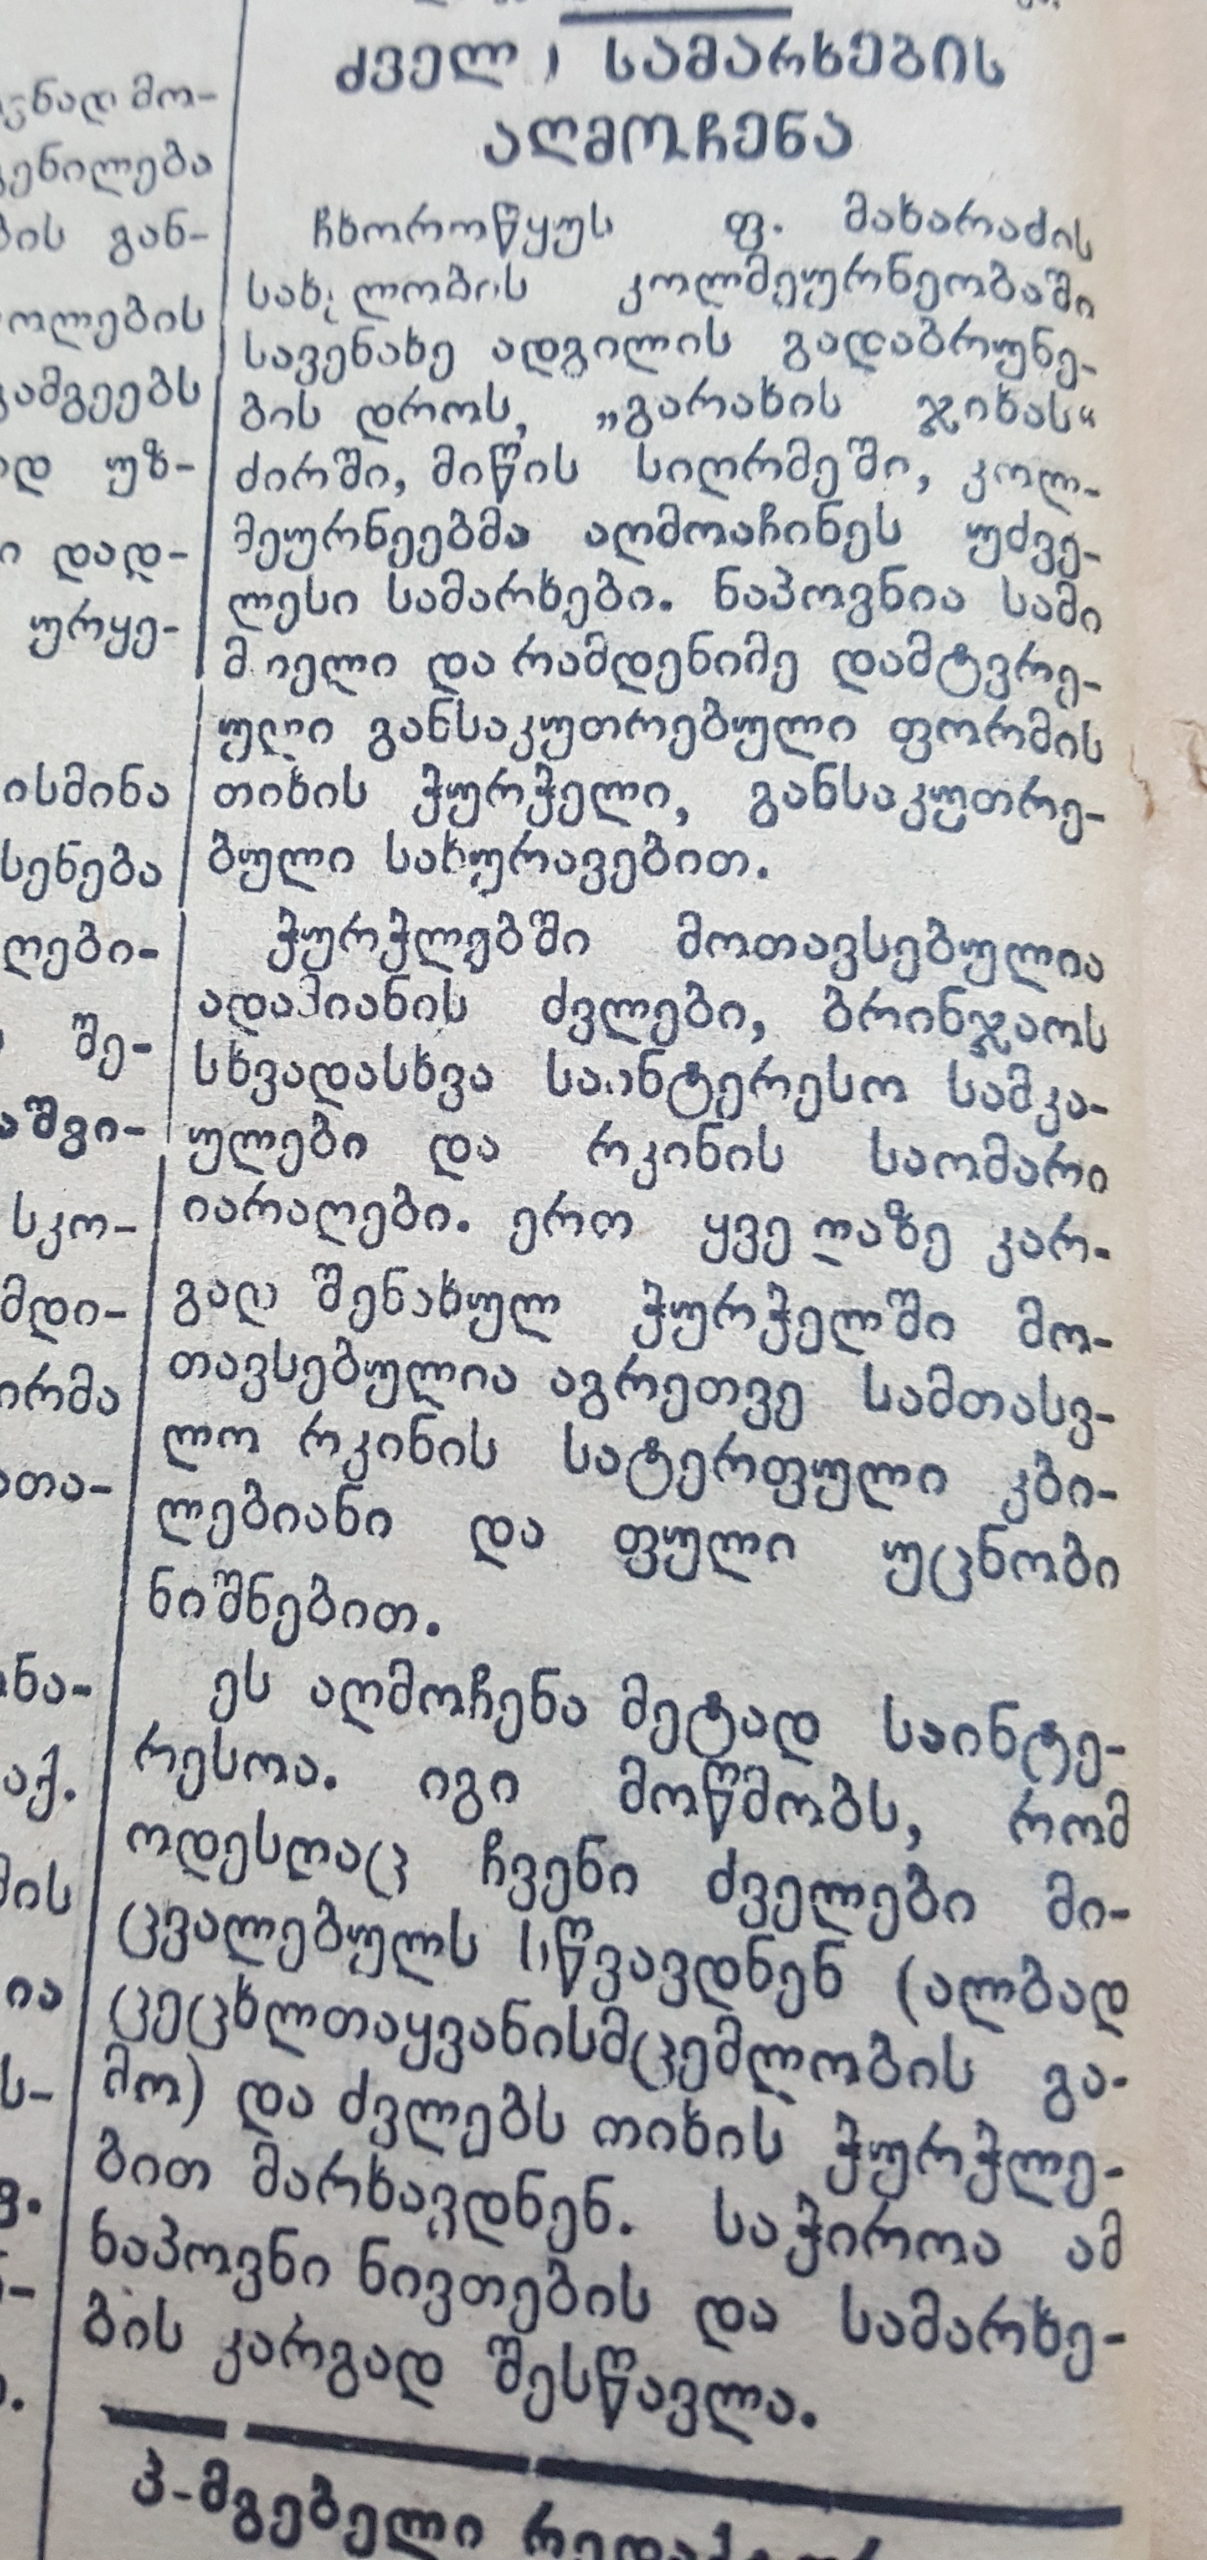 ძველი სამარხების
აღმოჩენა
ჩხოროწყუს ფ. მახარაძის
სახელობის კოლმეურნეობაში
სავენახე ადგილის გადაბრუნე-
ბის დროს, „გარახის ჯიხას“
ძირში, მიწის სიღრმეში, კოლ-
მეურნეებმა აღმოაჩინეს უძვე-
ლესი სამარხები. ნაპოვნია სამი
მთელი და რამდენიმე დამტვრე-
ული განსაკუთრებული ფორმის
თიხის ჭურჭელი, განსაკუთრე-
ბული სახურავებით.
ჭურჭლებში მოთავსებულია
ადამიანის ძვლები, ბრინჯაოს
სხვადასხვა საინტერესო სამკა-
ულები და რკინის საომარი
იარაღები. ერთ ყველაზე კარ-
გად შენახულ ჭურჭელში მო-
თავსებულია აგრეთვე სამთასვ-
ლო რკინის სატერფული კბი-
ლებიანი და ფული უცნობი
ნიშნებით.
ეს აღმოჩენა მეტად საინტე-
რესოა. იგი მოწმობს, რომ
ოდესღაც ჩვენი ძველები მი-
ცვალებულს სწვავდნენ (ალბად
ცეცხლთაყვანისმცემლობის გა-
მო) და ძვლებს თიხის ჭურჭლე-
ბით მარხავდნენ. საჭიროა ამ
ნაპოვნი ნივთების და სამარხე-
ბის კარგად შესწავლა.
პ-მგებელი
ისმინა
ოლების
გან-
უზ-
დად-
ურყე-
შე-
სკო-